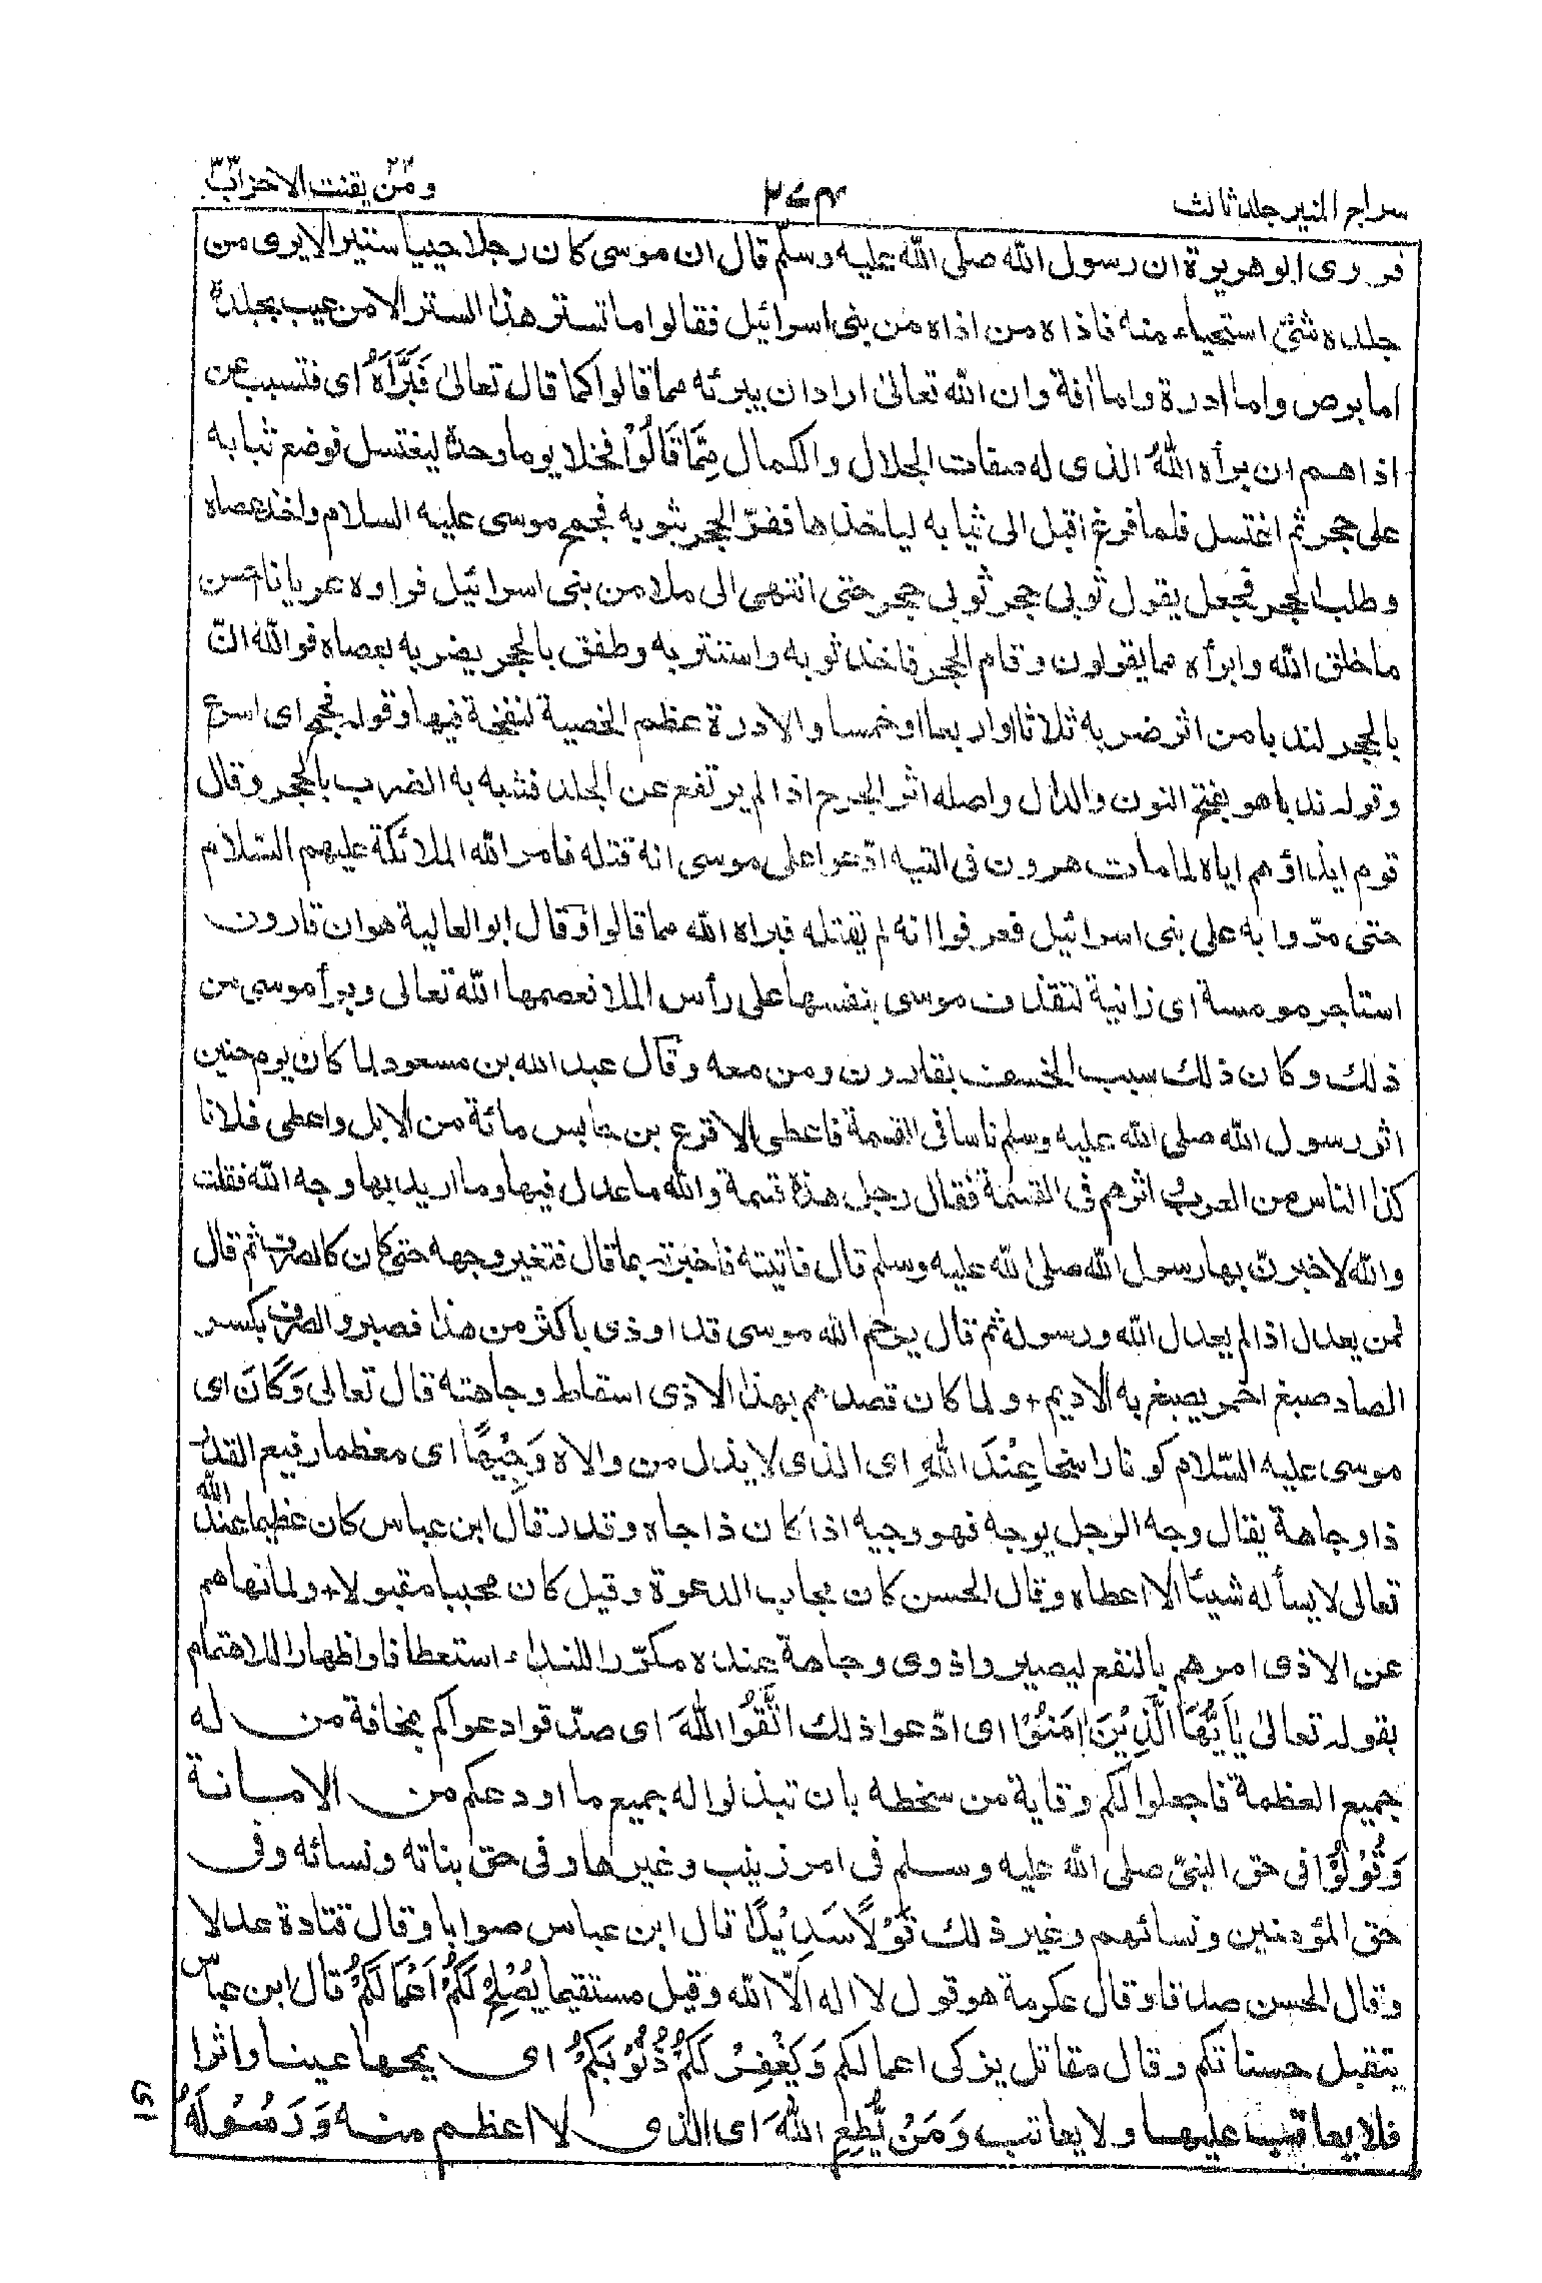 سراج المنير جلد ثالث
٢٧٤
ومن يقنت ٢٢ الاحزاب ٣٣
فروى ابو هريرة ان رسول الله صلى الله عليه وسلم قال ان موسى كان رجلا حييا ستيرا لا يرى من
جلده شئ استحياء منه فاذاه من اذاه من بنى اسرائيل فقالوا ما تستر هذا الستر الا من عيب بجلده
اما برص واما ادرة واما افة وان الله تعالىٰ اراد ان يبرئه مما قالوا كما قال تعالىٰ فَبَرَّاَهُ اى فتسبب عن
اذاهم ان برأه اللهُ الذى له صفات الجلال والكمال مِمَّا قَالُوْا فخلا يوما وحده ليغتسل فوضع ثيابه
على حجر ثم اغتسل فلما فرغ اقبل الى ثيابه لياخذها ففرّ الحجر بثوبه فجمح موسى عليه السلام واخذ عصاه
وطلب الحجر فجعل يقول ثوبى حجر ثوبى حجر حتى انتهى الى ملا من بنى اسرائيل فراوه عريانا احسن
ما خلق الله وابرأه مما يقولون وقام الحجر فاخذ ثوبه واستتر به وطفق بالحجر يضربه بعصاه فوالله انّ
بالحجر لندبا من اثر ضربه ثلاثا او اربعا او خمسا والادرة عظم الخصية لنفخة فيها وقوله فجمح اى اسرع
وقوله ندبا هو بفتح النون والدال واصله اثر الجرح اذا لم يرتفع عن الجلد فشبه به الضرب بالحجر وقال
قوم ايذاؤهم اياه لما مات هرون فى التيه ادّعوا على موسى انه قتله فامر الله الملائكة عليهم السّلام
حتى مرّوا به على بنى اسرائيل فعرفوا انه لم يقتله فبراه الله مما قالوا وقال ابو العالية هو ان قارون
استاجر مومسة اى زانية لتقذف موسى بنفسها على رأس الملا فعصمها الله تعالى وبرأ موسى من
ذلك وكان ذلك سبب الخسف بقارون ومن معه وقال عبد الله بن مسعود لما كان يوم حنين
اثر رسول الله صلى الله عليه وسلم ناسا فى القسمة فاعطى الاقرع بن حابس مائة من الابل واعطى فلانا
كذا الناس من العرب و اثرهم فى القسمة فقال رجل هذه قسمة والله ما عدل فيها وما اريد بها وجه الله فقلت
والله لاخبرن بها رسول الله صلى الله عليه وسلم قال فاتيته فاخبرته بما قال فتغير وجهه حتى كان كالصرف ثم قال
فمن يعدل اذا لم يعدل الله ورسوله ثم قال يرحم الله موسى قد اوذى باكثر من هذا فصبر والصرف بكسر
الصاد صبغ احمر يصبغ به الاديم + ولما كان قصدهم بهذا الاذى اسقاط وجاهته قال تعالى وَكَانَ اى
موسى عليه السّلام كونا راسخا عِنْدَ اللهِ اى الذى لا يذل من والاه وَجِيْهًا اى معظما رفيع القدر
ذا وجاهة يقال وجه الرجل يوجه فهو وجيه اذا كان ذا جاه وقدر قال ابن عباس كان عظيما عند الله
تعالى لا يسأله شيئا الا اعطاه وقال الحسن كان مجاب الدعوة وقيل كان محببا مقبولا + ولما نهاهم
عن الاذى امرهم بالنفع ليصيروا ذوى وجاهة عنده مكرّرا للنداء استعطافا واظهارا للاهتمام
بقوله تعالىٰ يٰاَيُّهَا الَّذِيْنَ اٰمَنُوْا اى ادّعوا ذلك اتَّقُوا اللهَ اى صدّقوا دعواكم بمخافة من له
جميع العظمة فاجعلوا لكم وقاية من سخطه بان تبذلوا له جميع ما اودعكم من الامانة
وَقُوْلُوْا فى حق النبىّ صلى الله عليه وسلم فى امر زينب وغيرها وفى حق بناته ونسائه وفى
حق المؤمنين ونسائهم وغير ذلك قَوْلًا سَدِيْدًا قال ابن عباس صوابا وقال قتادة عدلا
وقال الحسن صدقا وقال عكرمة هو قول لا اله الّا الله وقيل مستقيما يُصْلِحْ لَكُمْ اَعْمَالَكُمْ قال ابن عباس
يتقبل حسناتكم وقال مقاتل يزكى اعمالكم وَيَغْفِرْ لَكُمْ ذُنُوْبَكُمْ اى يمحها عينا واثرا
فلا يعاقب عليها ولا يعاتب وَمَنْ يُّطِعِ اللهَ اى الذى لا اعظم منه وَرَسُوْلَهُ